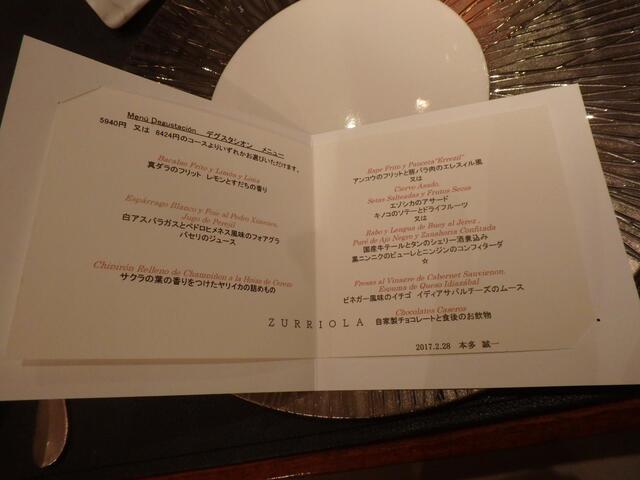 Menú Degustación デグスタシオン メニュー
5940円 又は 8424円のコースよりいずれかお選びいただけます。
Bacalao Frito y Limón y Lima
真ダラのフリット レモンとすだちの香り
Espárrago Blanco y Foie al Pedro Ximenez,
Jugo de Perejil
白アスパラガスとペドロヒメネス風味のフォアグラ
パセリのジュース
Chipirón Relleno de Champiñon a la Hojas de Cerezo
サクラの葉の香りをつけたヤリイカの詰めもの
ZURRIOLA
Rape Frito y Panceta "Errezil"
アンコウのフリットと豚バラ肉のエレスィル風
又は
Ciervo Asado,
Setas Salteadas y Frutos Secos
エゾシカのアサード
キノコのソテーとドライフルーツ
又は
Rabo y Lengua de Buey al Jerez,
Puré de Ajo Negro y Zanahoria Confitada
国産牛テールとタンのシェリー酒煮込み
黒ニンニクのピューレとニンジンのコンフィターダ
☆
Fresas al Vinagre de Cabernet Sauvignon,
Espuma de Queso Idiazábal
ビネガー風味のイチゴ イディアサバルチーズのムース
Chocolates Caseros
自家製チョコレートと食後のお飲物
2017.2.28 本多 誠一